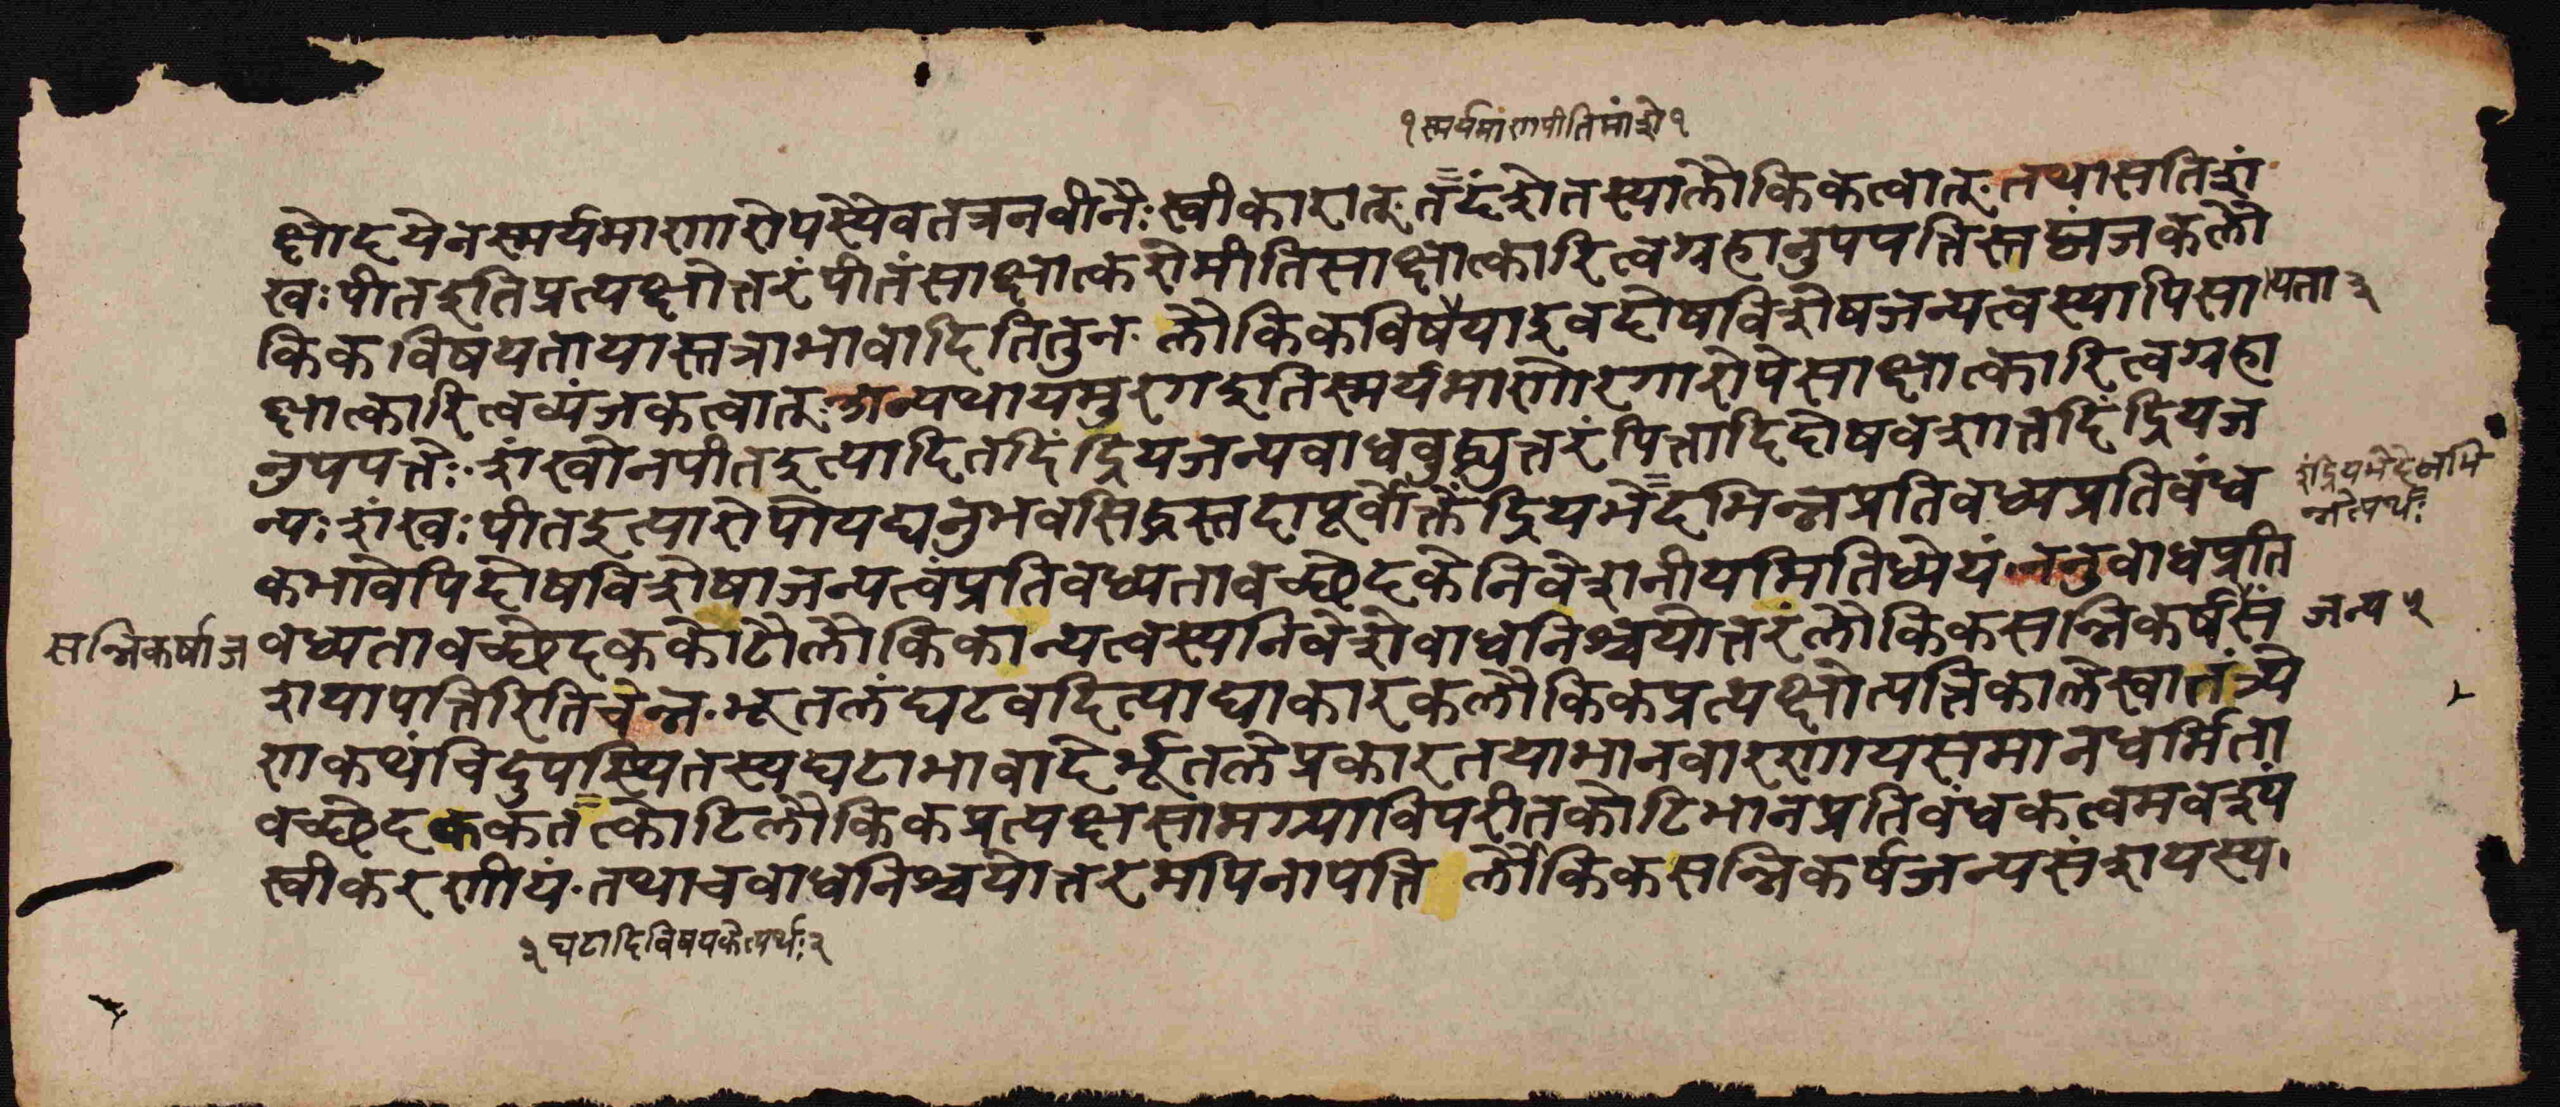 १ स्मर्यमाणपीतिमांशे १
क्षोदयेनस्मर्यमाणारोपस्यैवतत्रनवीनैः स्वीकारात् तदंशेतस्यालौकिकत्वात् तथासतिशं
खः पीतइतिप्रत्यक्षोत्तरं पीतंसाक्षात्करोमीतिसाक्षात्कारित्वग्रहानुपपत्तिस्तद्व्यंजकलौ
किकविषयतायास्तत्राभावादितितुन लौकिकविषैयाइवदोषविशेषजन्यत्वस्यापिसा यता ३
क्षात्कारित्वव्यंजकत्वात् अन्यथायमुरगइतिस्मर्यमाणोरगारोपेसाक्षात्कारित्वग्रहा
नुपपत्तेः शंखोनपीतइत्यादितदिंद्रियजन्यवाधवुद्ध्युत्तरं पित्तादिदोषवशात्तदिंद्रियज
न्यः शंखः पीतइत्यारोपोयद्यनुभवसिद्धस्तदापूर्वोक्तेंद्रियभेदभिन्नप्रतिवध्यप्रतिवंध
इंद्रियभेदेनभि
न्नेत्यर्थः
कभावेपिदोषविशेषाजन्यत्वंप्रतिवध्यतावच्छेदकेनिवेशनीयमितिध्येयं ननुवाधप्रति
वध्यतावच्छेदककोटौलौकिकान्यत्वस्यनिवेशेवाधनिश्चयोत्तरंलौकिकसन्निकर्षसं जन्य ५
सन्निकर्षाज
शयापत्तिरितिचेन्न भूतलंघटवदित्याद्याकारकलौकिकप्रत्यक्षोत्पत्तिकालेस्वातंत्र्ये
णकथंचिदुपस्थितस्यघटाभावादेर्भूतलेप्रकारतयाभानवारणायसमानधर्मिता
वच्छेदककतत्कोटिलौकिकप्रत्यक्षसामग्र्याविपरीतकोटिभानप्रतिवंधकत्वमवश्यं
स्वीकरणीयं तथाचवाधनिश्चयोत्तरमपिनापत्ति लौकिकसन्निकर्षजन्यसंशयस्य।
२ घटादिविषयकेत्यर्थः २